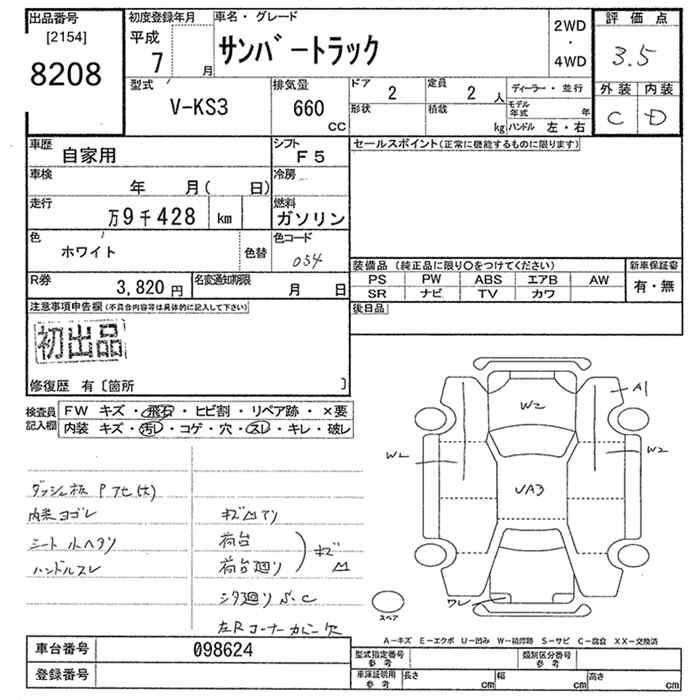 出品番号 初度登録年月 車名・グレード 2WD 評価点
[2154] 平成 サンバートラック ・
8208 7 月 4WD 3.5
型式 排気量 ドア 2 定員 2 人 ディーラー・並行 外装 内装
V-KS3 660 CC 形状 積載 kg モデル年式 年 C D
ハンドル 左・右
車歴 自家用 シフト F5 セールスポイント(正常に機能するものに限ります)
車検 年 月( 日) 冷房
走行 万9千428 km 燃料 ガソリン
色 ホワイト 色替 色コード 054
装備品 (純正品に限り〇をつけてください) 新車保証書
R券 3,820円 名変通知期限 月 日 PS PW ABS エアB AW 有・無
SR ナビ TV カワ
注意事項申告欄(不具合内容等は具体的に記入して下さい) 後日品
初出品
修復歴 有〔箇所 〕
検査員記入欄 FW キズ・飛石・ヒビ割・リペア跡・×要
内装 キズ・汚レ・コゲ・穴・スレ・キレ・破レ
A1
W2
W2 W2
UA3
ダッシュ板 Pアセ(大)
内装ヨゴレ
シート小ヘタリ 荷台
ハンドルスレ 荷台廻り キズ凹
シタ廻りS.C ワレ
左Rコーナーカバー欠 スペア
A-キズ E-エクボ U-凹み W-補修跡 S-サビ C-腐食 XX-交換済
車台番号 098624 型式指定番号 参考 類別区分番号 参考
登録番号 車庫証明用 参考 長さ cm 幅 cm 高さ cm